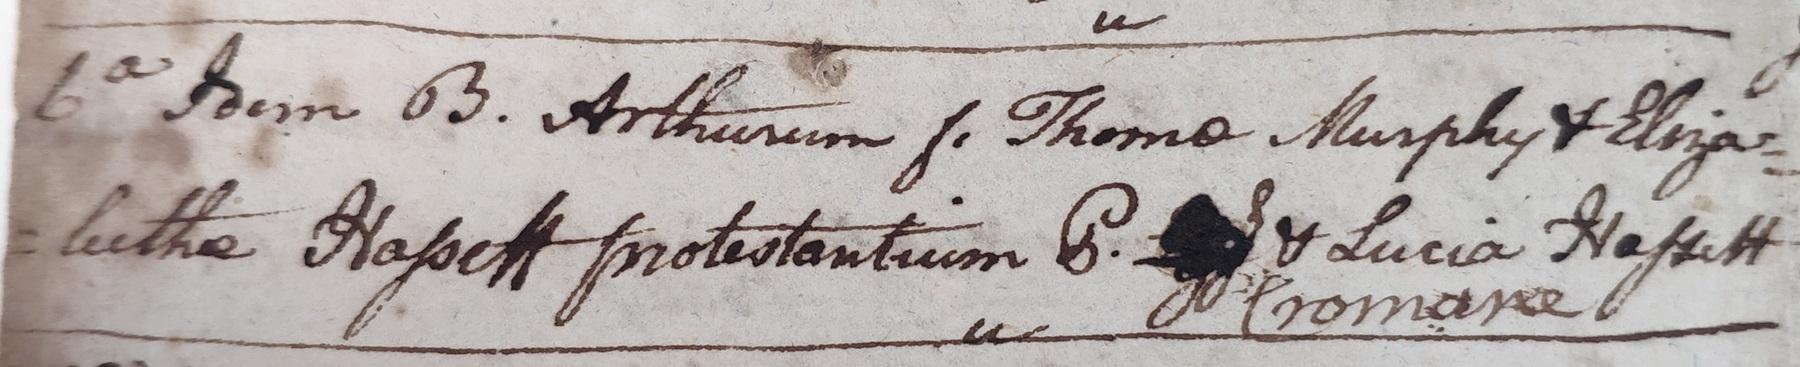 6a Idem B. Arthurum f. Thomæ Murphy & Eliza=
=bethæ Hassett protestantium P. & Lucia Hassett
(romanæ